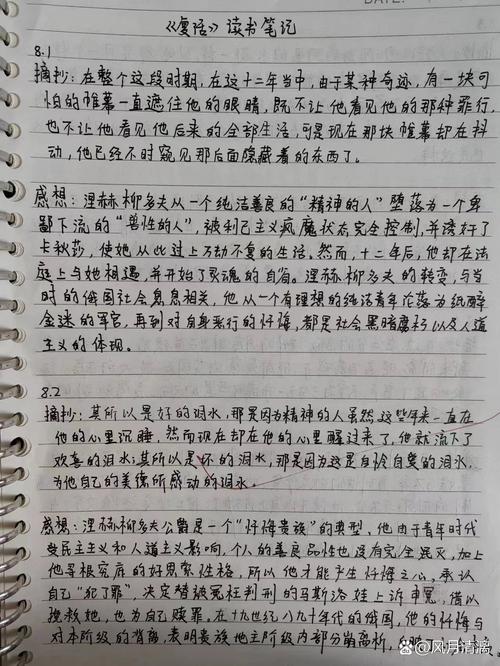 《复活》读书笔记
8.1
摘抄：在整个这段时期，在这十二年当中，由于某种奇迹，有一块可
怕的帷幕一直遮住他的眼睛，既不让他看见他的那种罪行，
也不让他看见他后来的全部生活，可是现在那块帷幕却在抖
动，他已经不时窥见那后面隐藏着的东西了。
感想：涅赫柳多夫从一个纯洁善良的“精神的人”堕落为一个卑
鄙下流的“兽性的人”，被利己主义疯魔状态完全控制，并诱奸了
卡秋莎，使她从此过上万劫不复的生活。然而，十二年后，他却在法
庭上与她相遇，并开始了灵魂的自省。涅赫柳多夫的转变，与当
时的俄国社会息息相关，他从一个有理想的纯洁青年沦落为纸醉
金迷的军官，再到对自身恶行的忏悔，都是社会黑暗腐朽以及人道
主义的体现。
8.2
摘抄：其所以是好的泪水，那是因为精神的人虽然这些年来一直在
他的心里沉睡，然而现在却在他的心里醒过来了，他就流下了
欢喜的泪水；其所以是坏的泪水，那是因为这是自怜自爱的泪水，
为他自己的美德所感动的泪水。
感想：涅赫柳多夫公爵是一个“忏悔贵族”的典型、他由于青年时代
受民主主义和人道主义影响，个人的善良品性也没有完全泯灭，加上
他寻根究底的好思索性格，所以他才能产生忏悔之心，承认
自己“犯了罪”，决定替被冤枉判刑的马斯洛娃上诉申冤，借以
挽救她，也为自己赎罪。在十九世纪八九十年代的俄国，他的忏悔与
对本阶级的背离，表明贵族地主阶级内部分崩离析，
Baidu @风月清漓